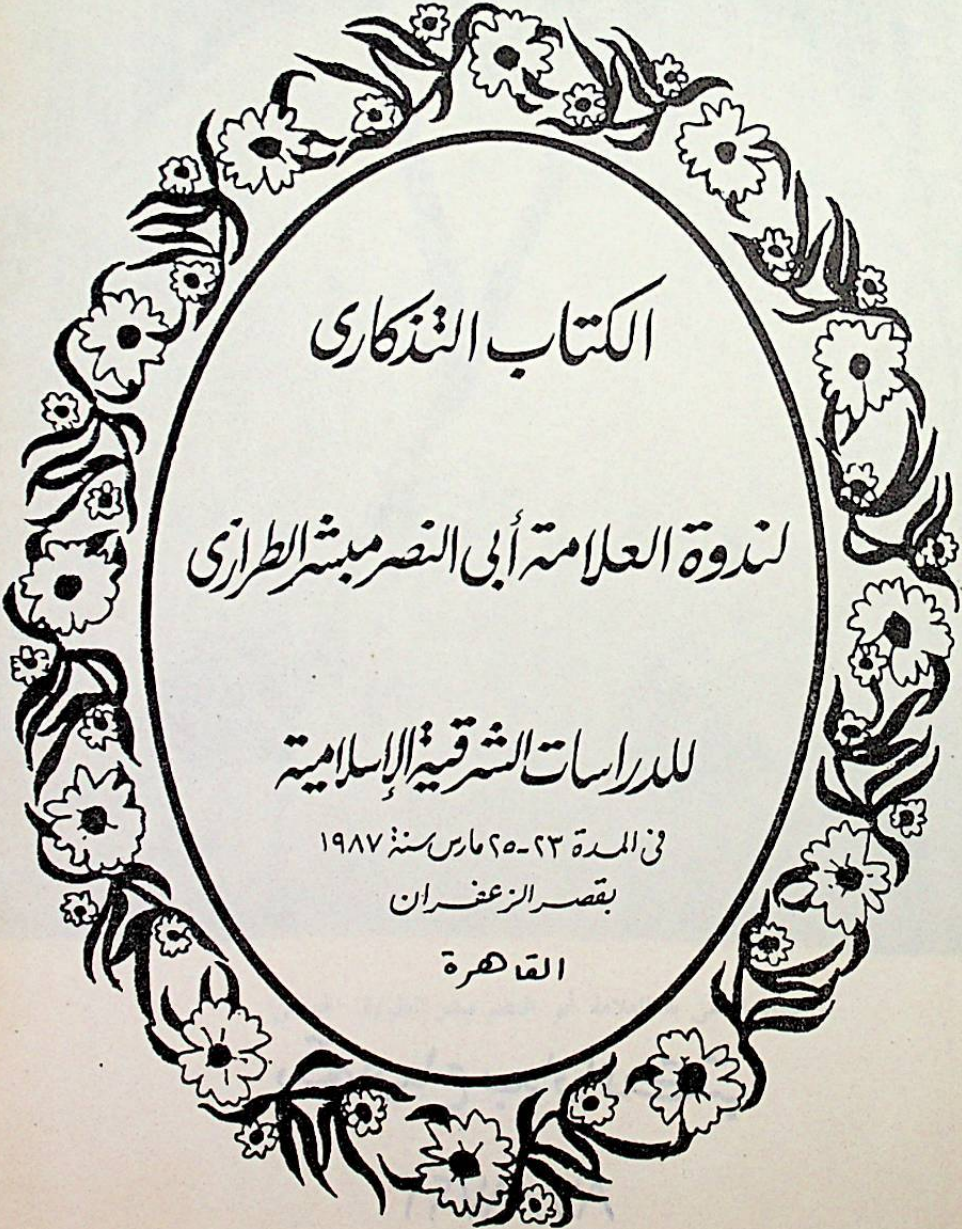 الكتاب التذكارى
لندوة العلامة أبى النصر مبشر الطرازى
للدراسات الشرقية الإسلامية
فى المدة ٢٣-٢٥ مارس سنة ١٩٨٧
بقصر الزعفران
القاهرة